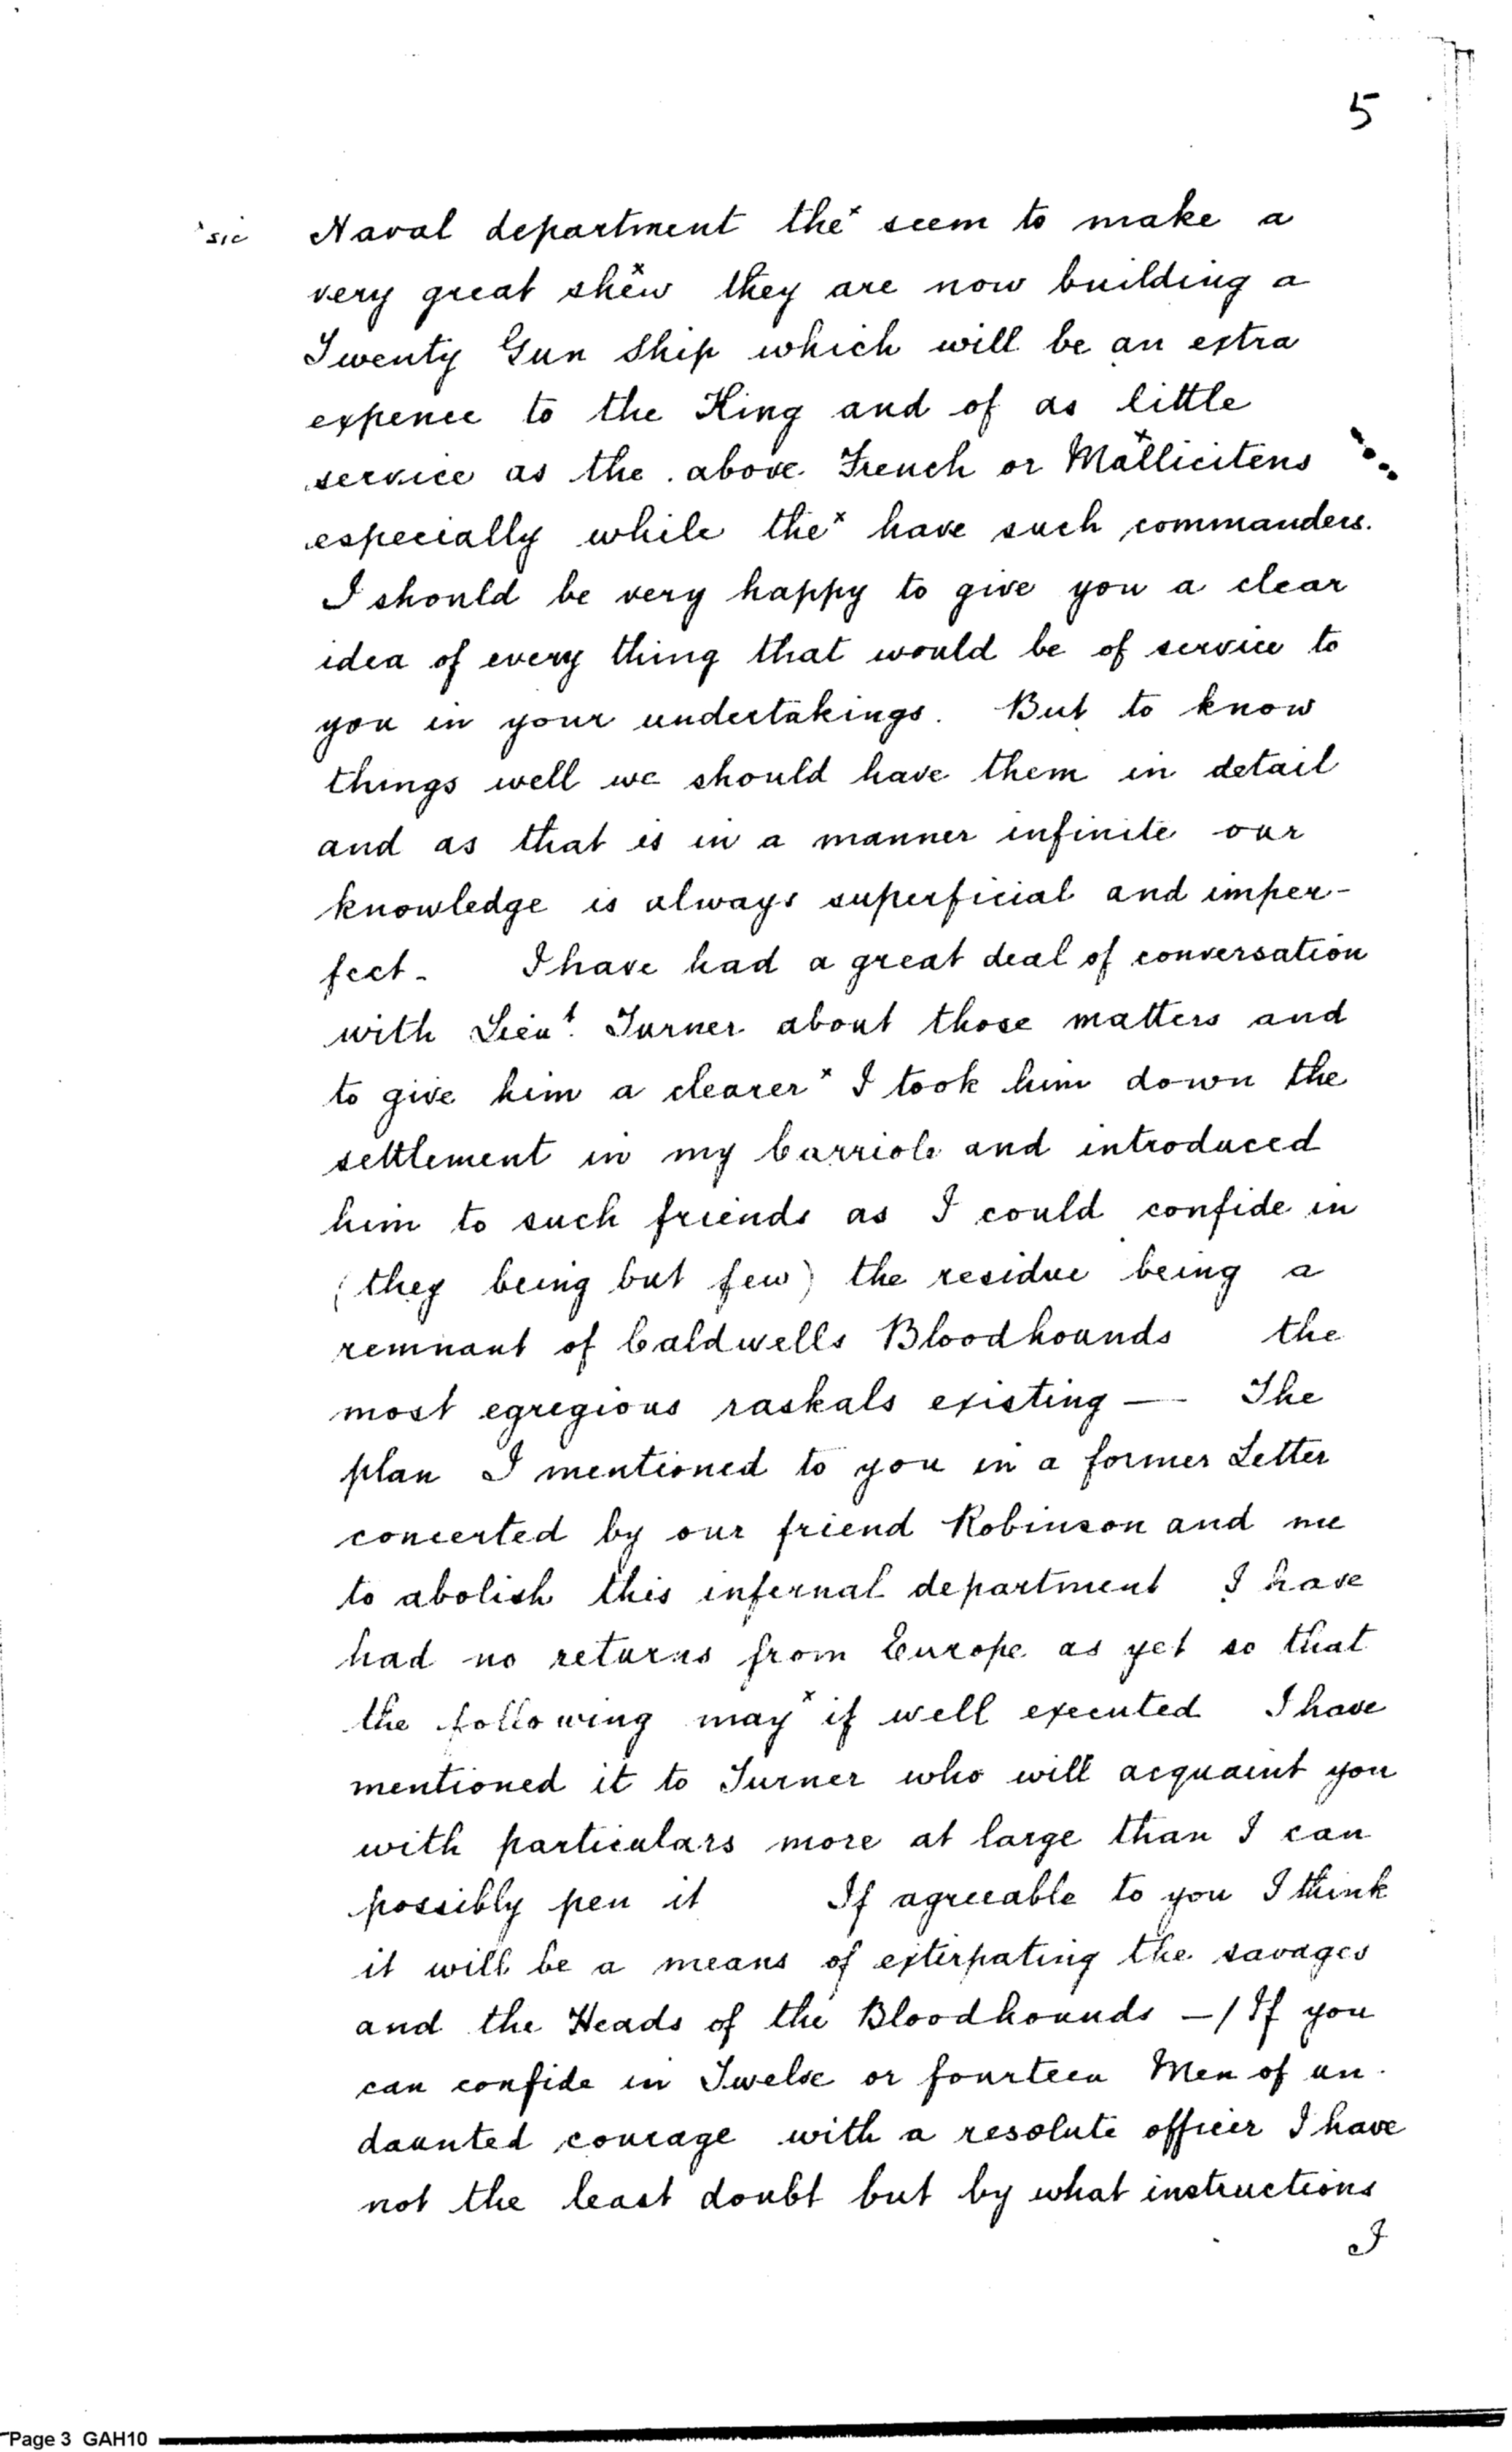 5
ˣsic Naval department theˣ seem to make a
very great shewˣ they are now building a
Twenty Gun Ship which will be an extra
expence to the King and of as little
service as the above French or Mallicitensˣ
especially while theˣ have such commanders.
I should be very happy to give you a clear
idea of every thing that would be of service to
you in your undertakings. But to know
things well we should have them in detail
and as that is in a manner infinite our
knowledge is always superficial and imper-
fect - I have had a great deal of conversation
with Lieuᵗ. Turner about those matters and
to give him a clearerˣ I took him down the
settlement in my Carriole and introduced
him to such friends as I could confide in
(they being but few) the residue being a
remnant of Caldwells Bloodhounds the
most egregious raskals existing — The
plan I mentioned to you in a former Letter
concerted by our friend Robinson and me
to abolish this infernal department I have
had no returns from Europe as yet so that
the following mayˣ if well executed I have
mentioned it to Turner who will acquaint you
with particulars more at large than I can
possibly pen it If agreeable to you I think
it will be a means of exterpating the savages
and the Heads of the Bloodhounds —/ If you
can confide in Twelve or fourteen Men of un-
daunted courage with a resolute officer I have
not the least doubt but by what instructions
I
Page 3 GAH10